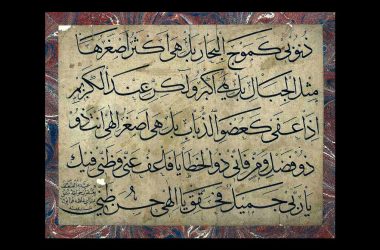 ذنوبي كموج البحار بل هي اكثر اصغرها
مثل الجبال بل هي اكبر ولكن عند الكريم
اذا عفى كعضو الذباب بل هي اصغر الهي انت ذو
ذو فضل ومن فاني ذو الخطايا فاعف عني وظني فيك
يا ربي جميل فحقق يا الهي حسن ظني